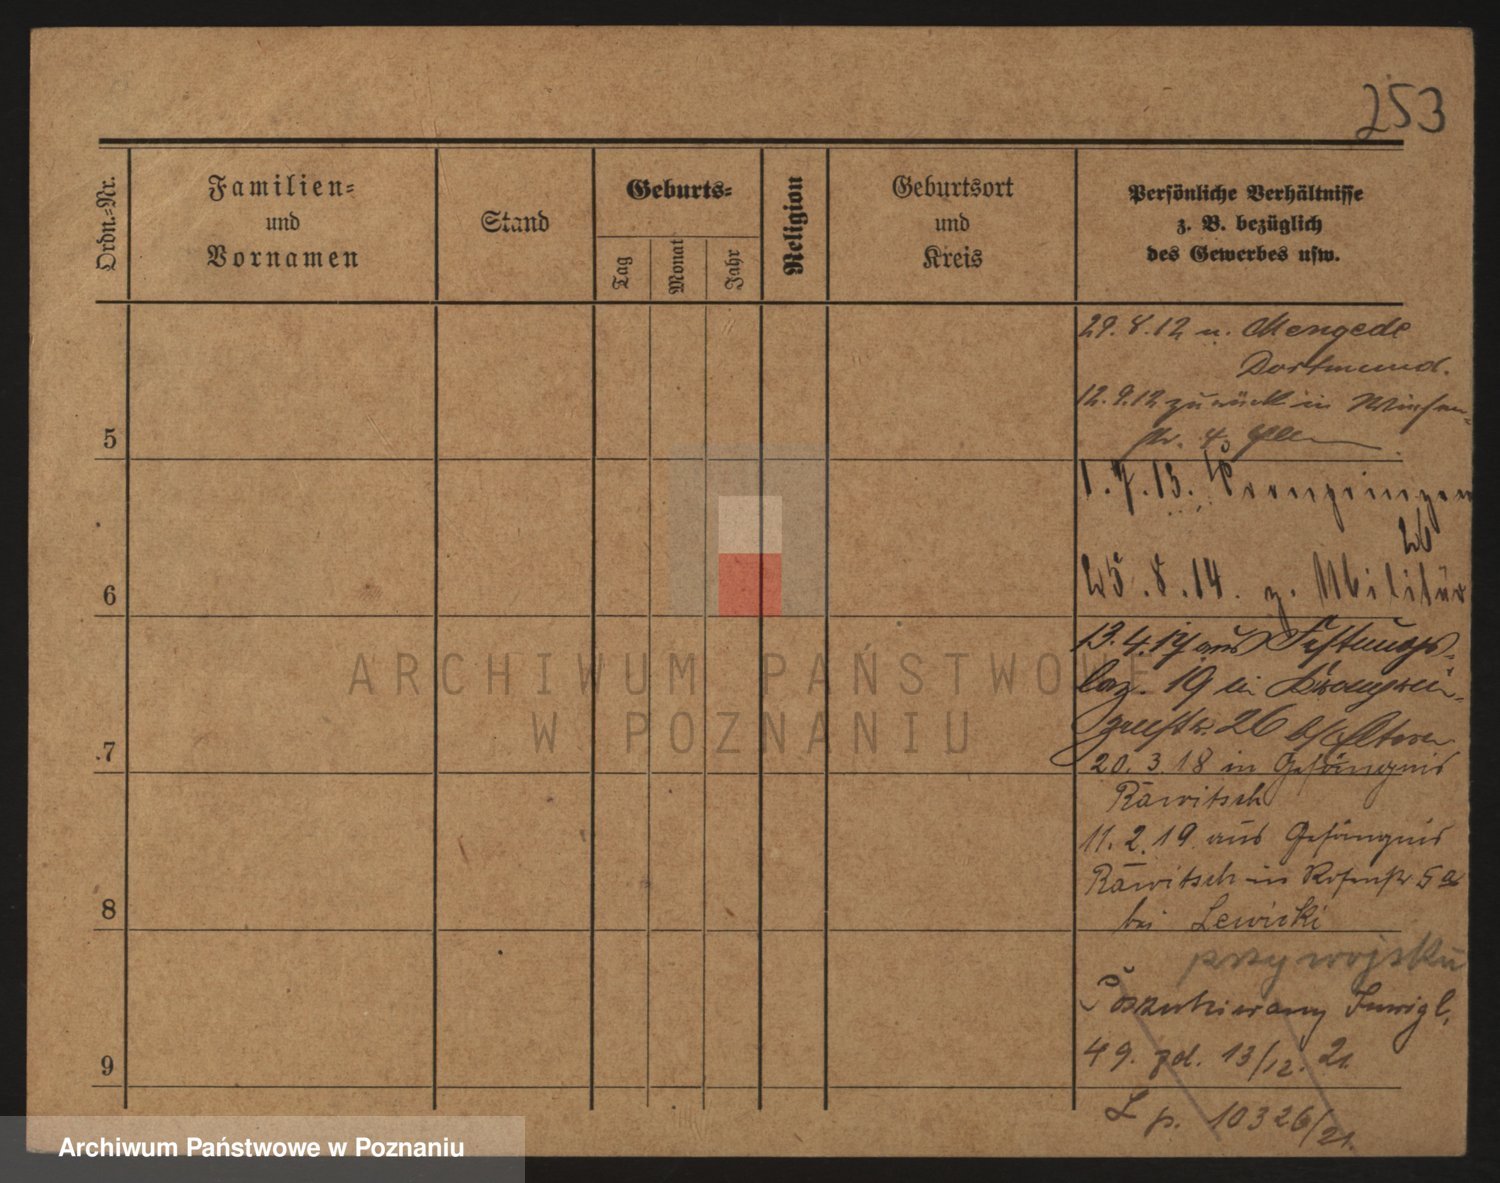 253
Ordn.-Nr.
Familien-
und
Vornamen
Stand
Geburts-
Tag
Monat
Jahr
Religion
Geburtsort
und
Kreis
Persönliche Verhältnisse
z. B. bezüglich
des Gewerbes usw.
29.8.12 n. Mengede
Dortmund.
12.9.12 zurück in
5
str. 4.
1.7.13. Kronprinzen
26
25.8.14. z. Militär
6
13.4.17 aus Festungs-
laz. 19 in Kronprin-
zenstr. 26 b/
7
20.3.18 in Gefängnis
Rawitsch
11.2.19 aus Gefängnis
Rawitsch in Rosenstr 5a
8
bei Lewicki
przy wojsku
Poszukiwany
49. 13/12. 21.
9
L p. 10326/21.
ARCHIWUM PAŃSTWOWE
W POZNANIU
Archiwum Państwowe w Poznaniu